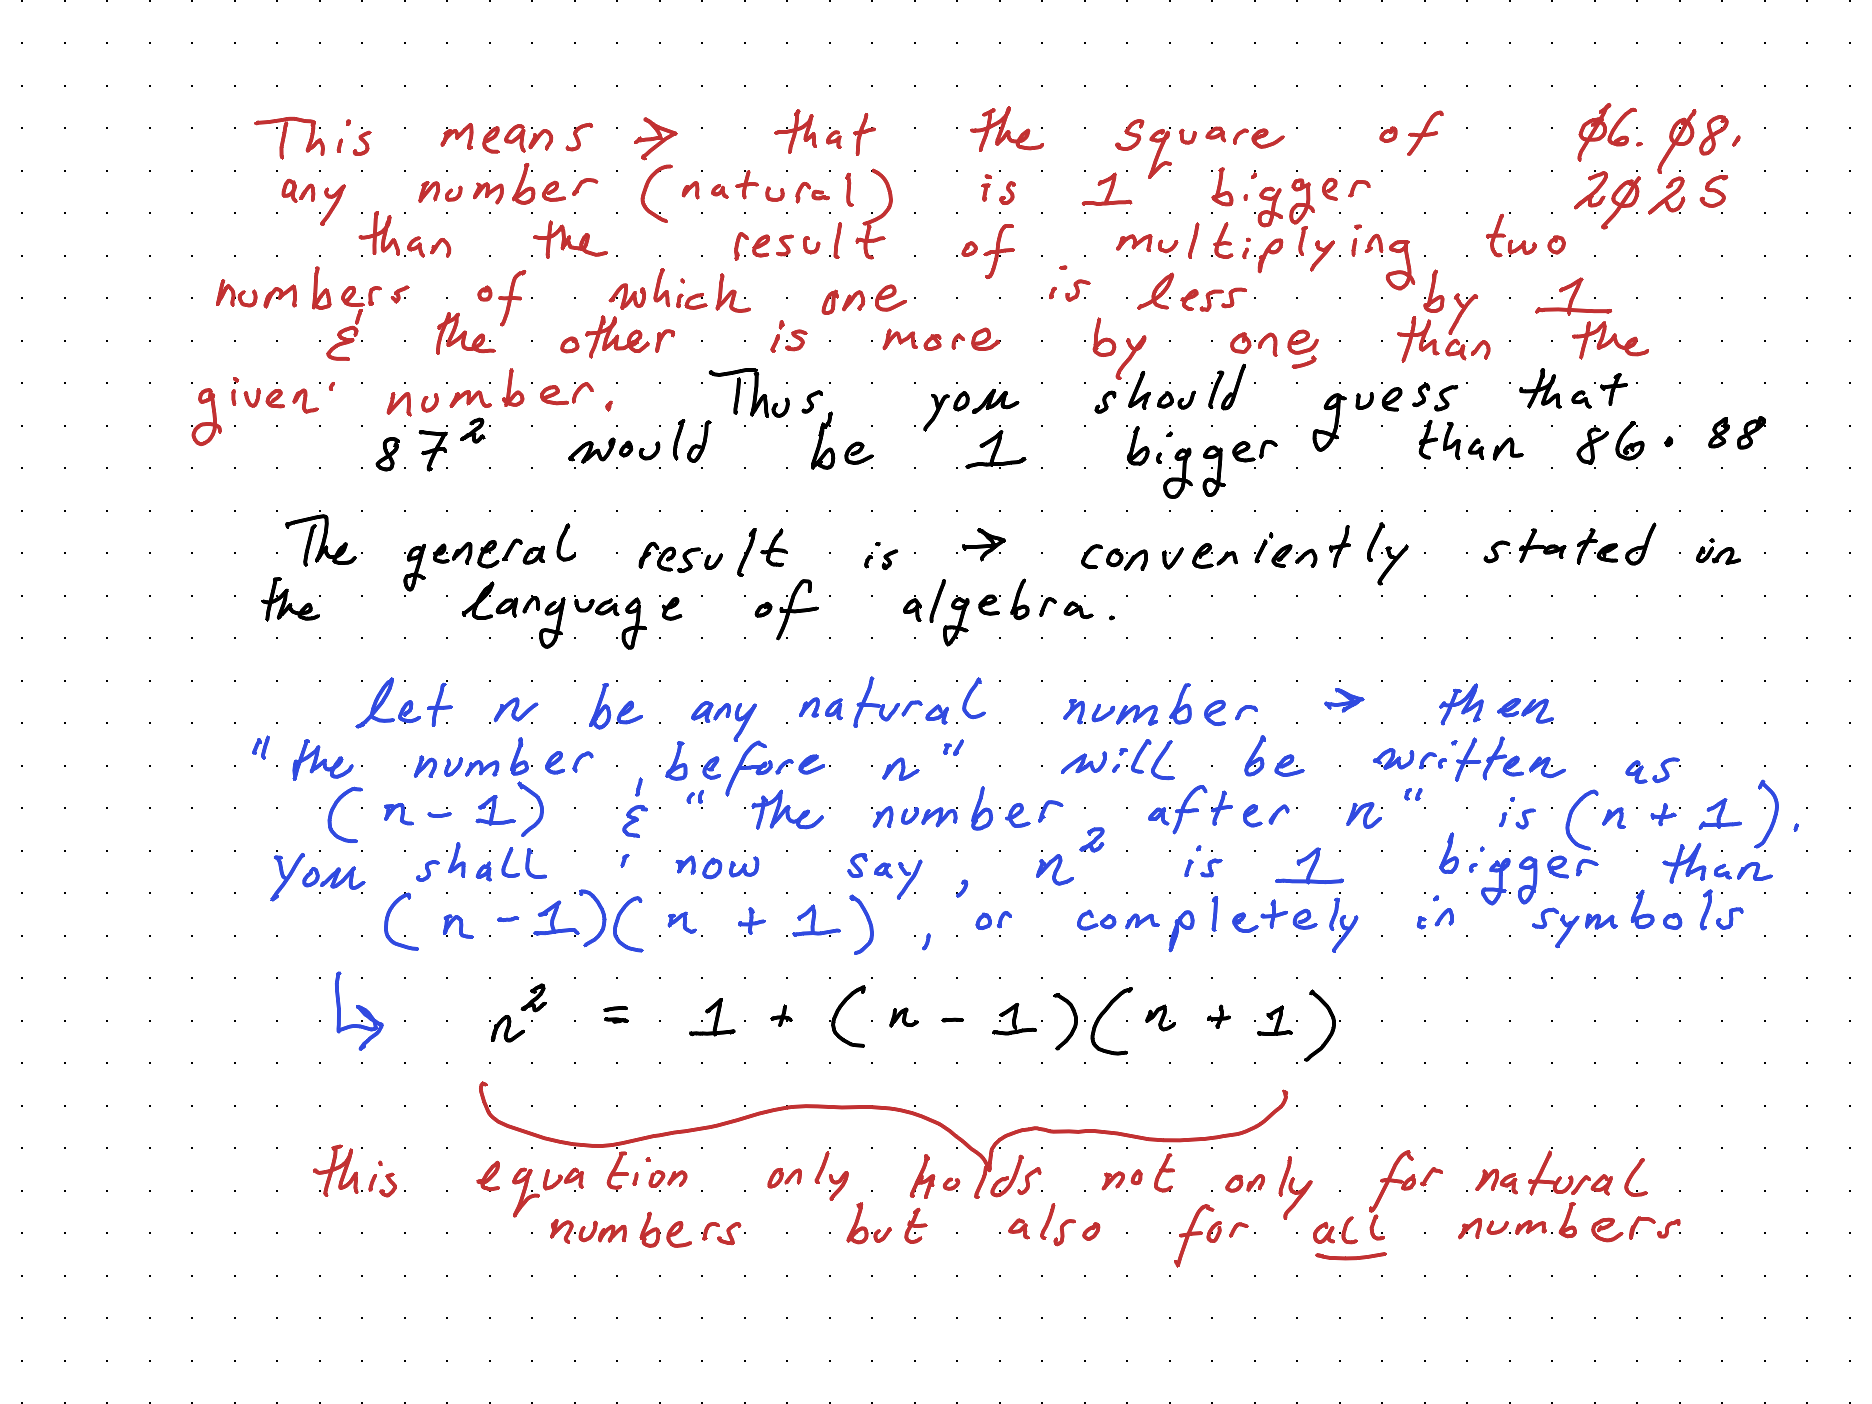 This means → that the square of ø6.ø8.
any number (natural) is 1 bigger 2ø25
than the result of multiplying two
numbers of which one is less by 1
& the other is more by one than the
given number. Thus, you should guess that
87² would be 1 bigger than 86.88
The general result is → conveniently stated in
the language of algebra.
let n be any natural number → then
"the number before n" will be written as
(n-1) & "the number after n" is (n+1).
you shall now say, n² is 1 bigger than
(n-1)(n+1), or completely in symbols
↳ n² = 1 + (n-1)(n+1)
this equation only holds not only for natural
numbers but also for all numbers